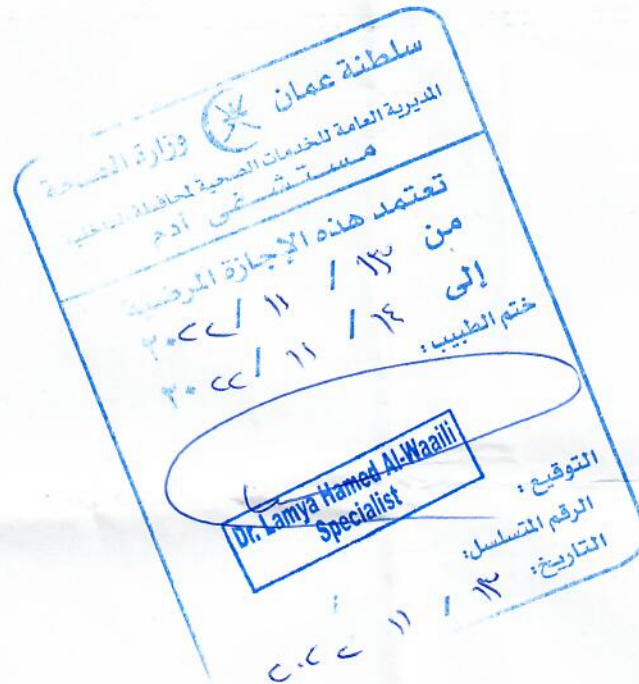 سلطنة عمان وزارة الصحة
المديرية العامة للخدمات الصحية لمحافظة الداخلية
مستشفى أدم
تعتمد هذه الإجازة المرضية
من ١٣ / ١١ / ٢٠٢٢
إلى ١٤ / ١١ / ٢٠٢٢
ختم الطبيب:
Dr. Lamya Hamed Al-Waaili
Specialist
التوقيع:
الرقم المتسلسل:
التاريخ: ١٣ / ١١ ٢٠٢٢